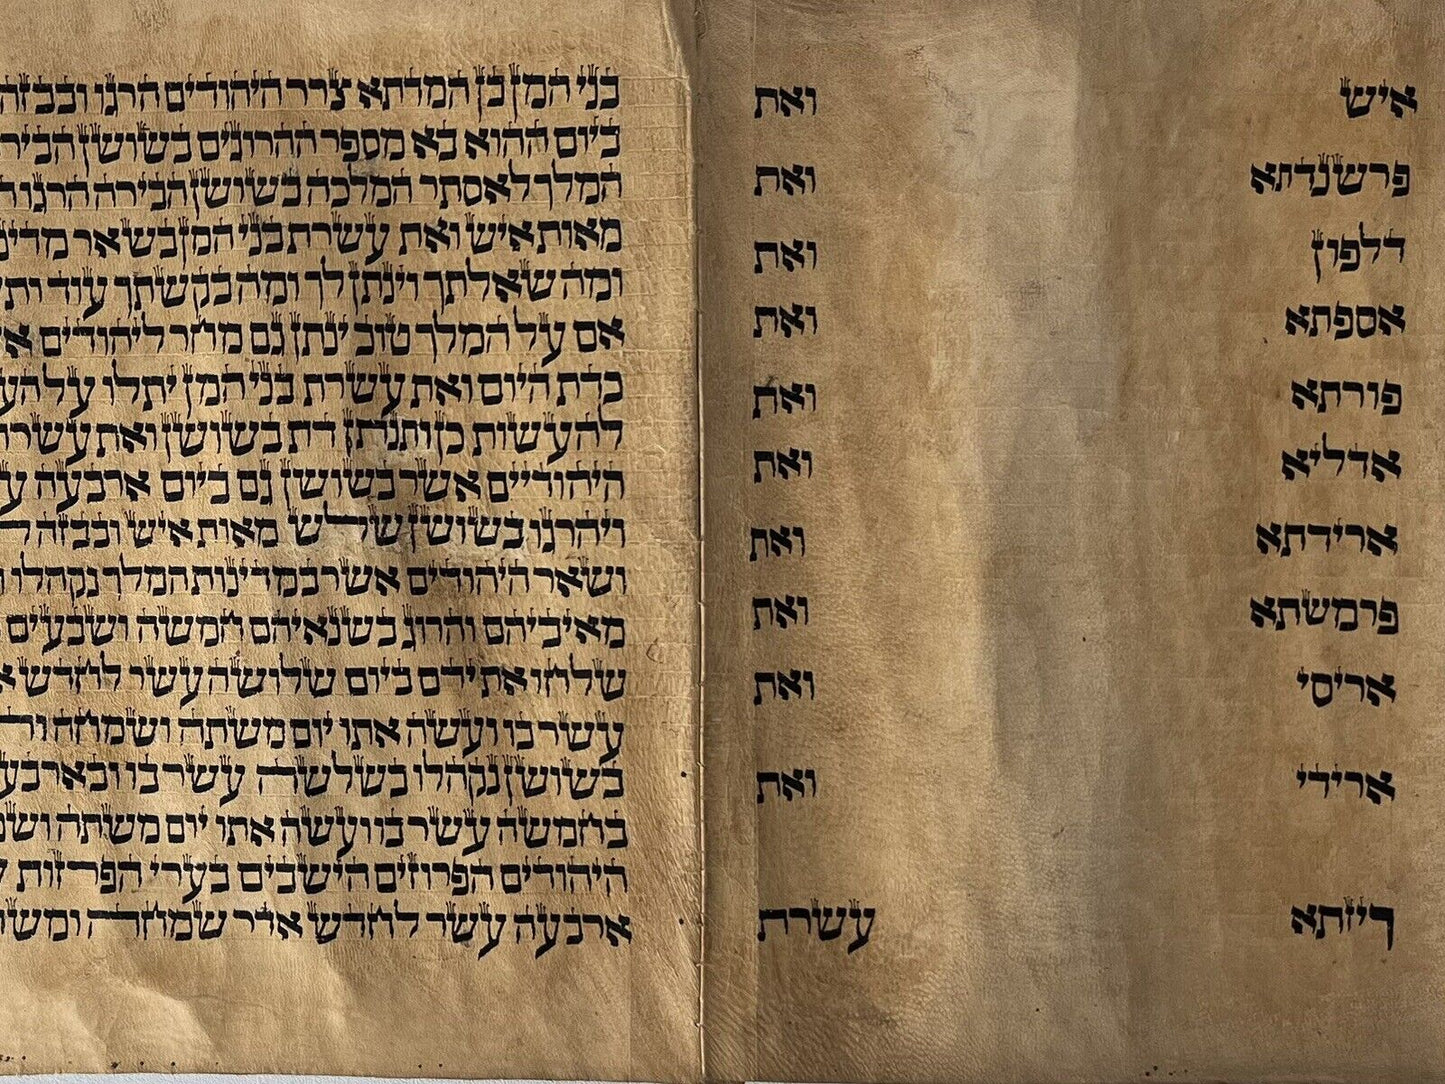 איש ואת
פרשנדתא ואת
דלפון ואת
אספתא ואת
פורתא ואת
אדליא ואת
ארידתא ואת
פרמשתא ואת
אריסי ואת
ארידי ואת
ויזתא עשרת
בני המן בן המדתא צרר היהודים הרגו ובבזה
ביום ההוא בא מספר ההרוגים בשושן הביר
המלך לאסתר המלכה בשושן הבירה הרגו
מאות איש ואת עשרת בני המן בשאר מדינ
ומה שאלתך וינתן לך ומה בקשתך עוד ות
אם על המלך טוב ינתן גם מחר ליהודים א
כדת היום ואת עשרת בני המן יתלו על הע
להעשות כן ותנתן דת בשושן ואת עשרת
היהודיים אשר בשושן גם ביום ארבעה ע
ויהרגו בשושן שלש מאות איש ובבזה ל
ושאר היהודים אשר במדינות המלך נקהלו ו
מאיביהם והרוג בשנאיהם חמשה ושבעים
שלחו את ידם ביום שלושה עשר לחדש א
עשר בו ועשה אתו יום משתה ושמחה
בשושן נקהלו בשלשה עשר בו ובארבע
בחמשה עשר בו ועשה אתו יום משתה ושמ
היהודים הפרוזים הישבים בערי הפרזות
ארבעה עשר לחדש אדר שמחה ומשת